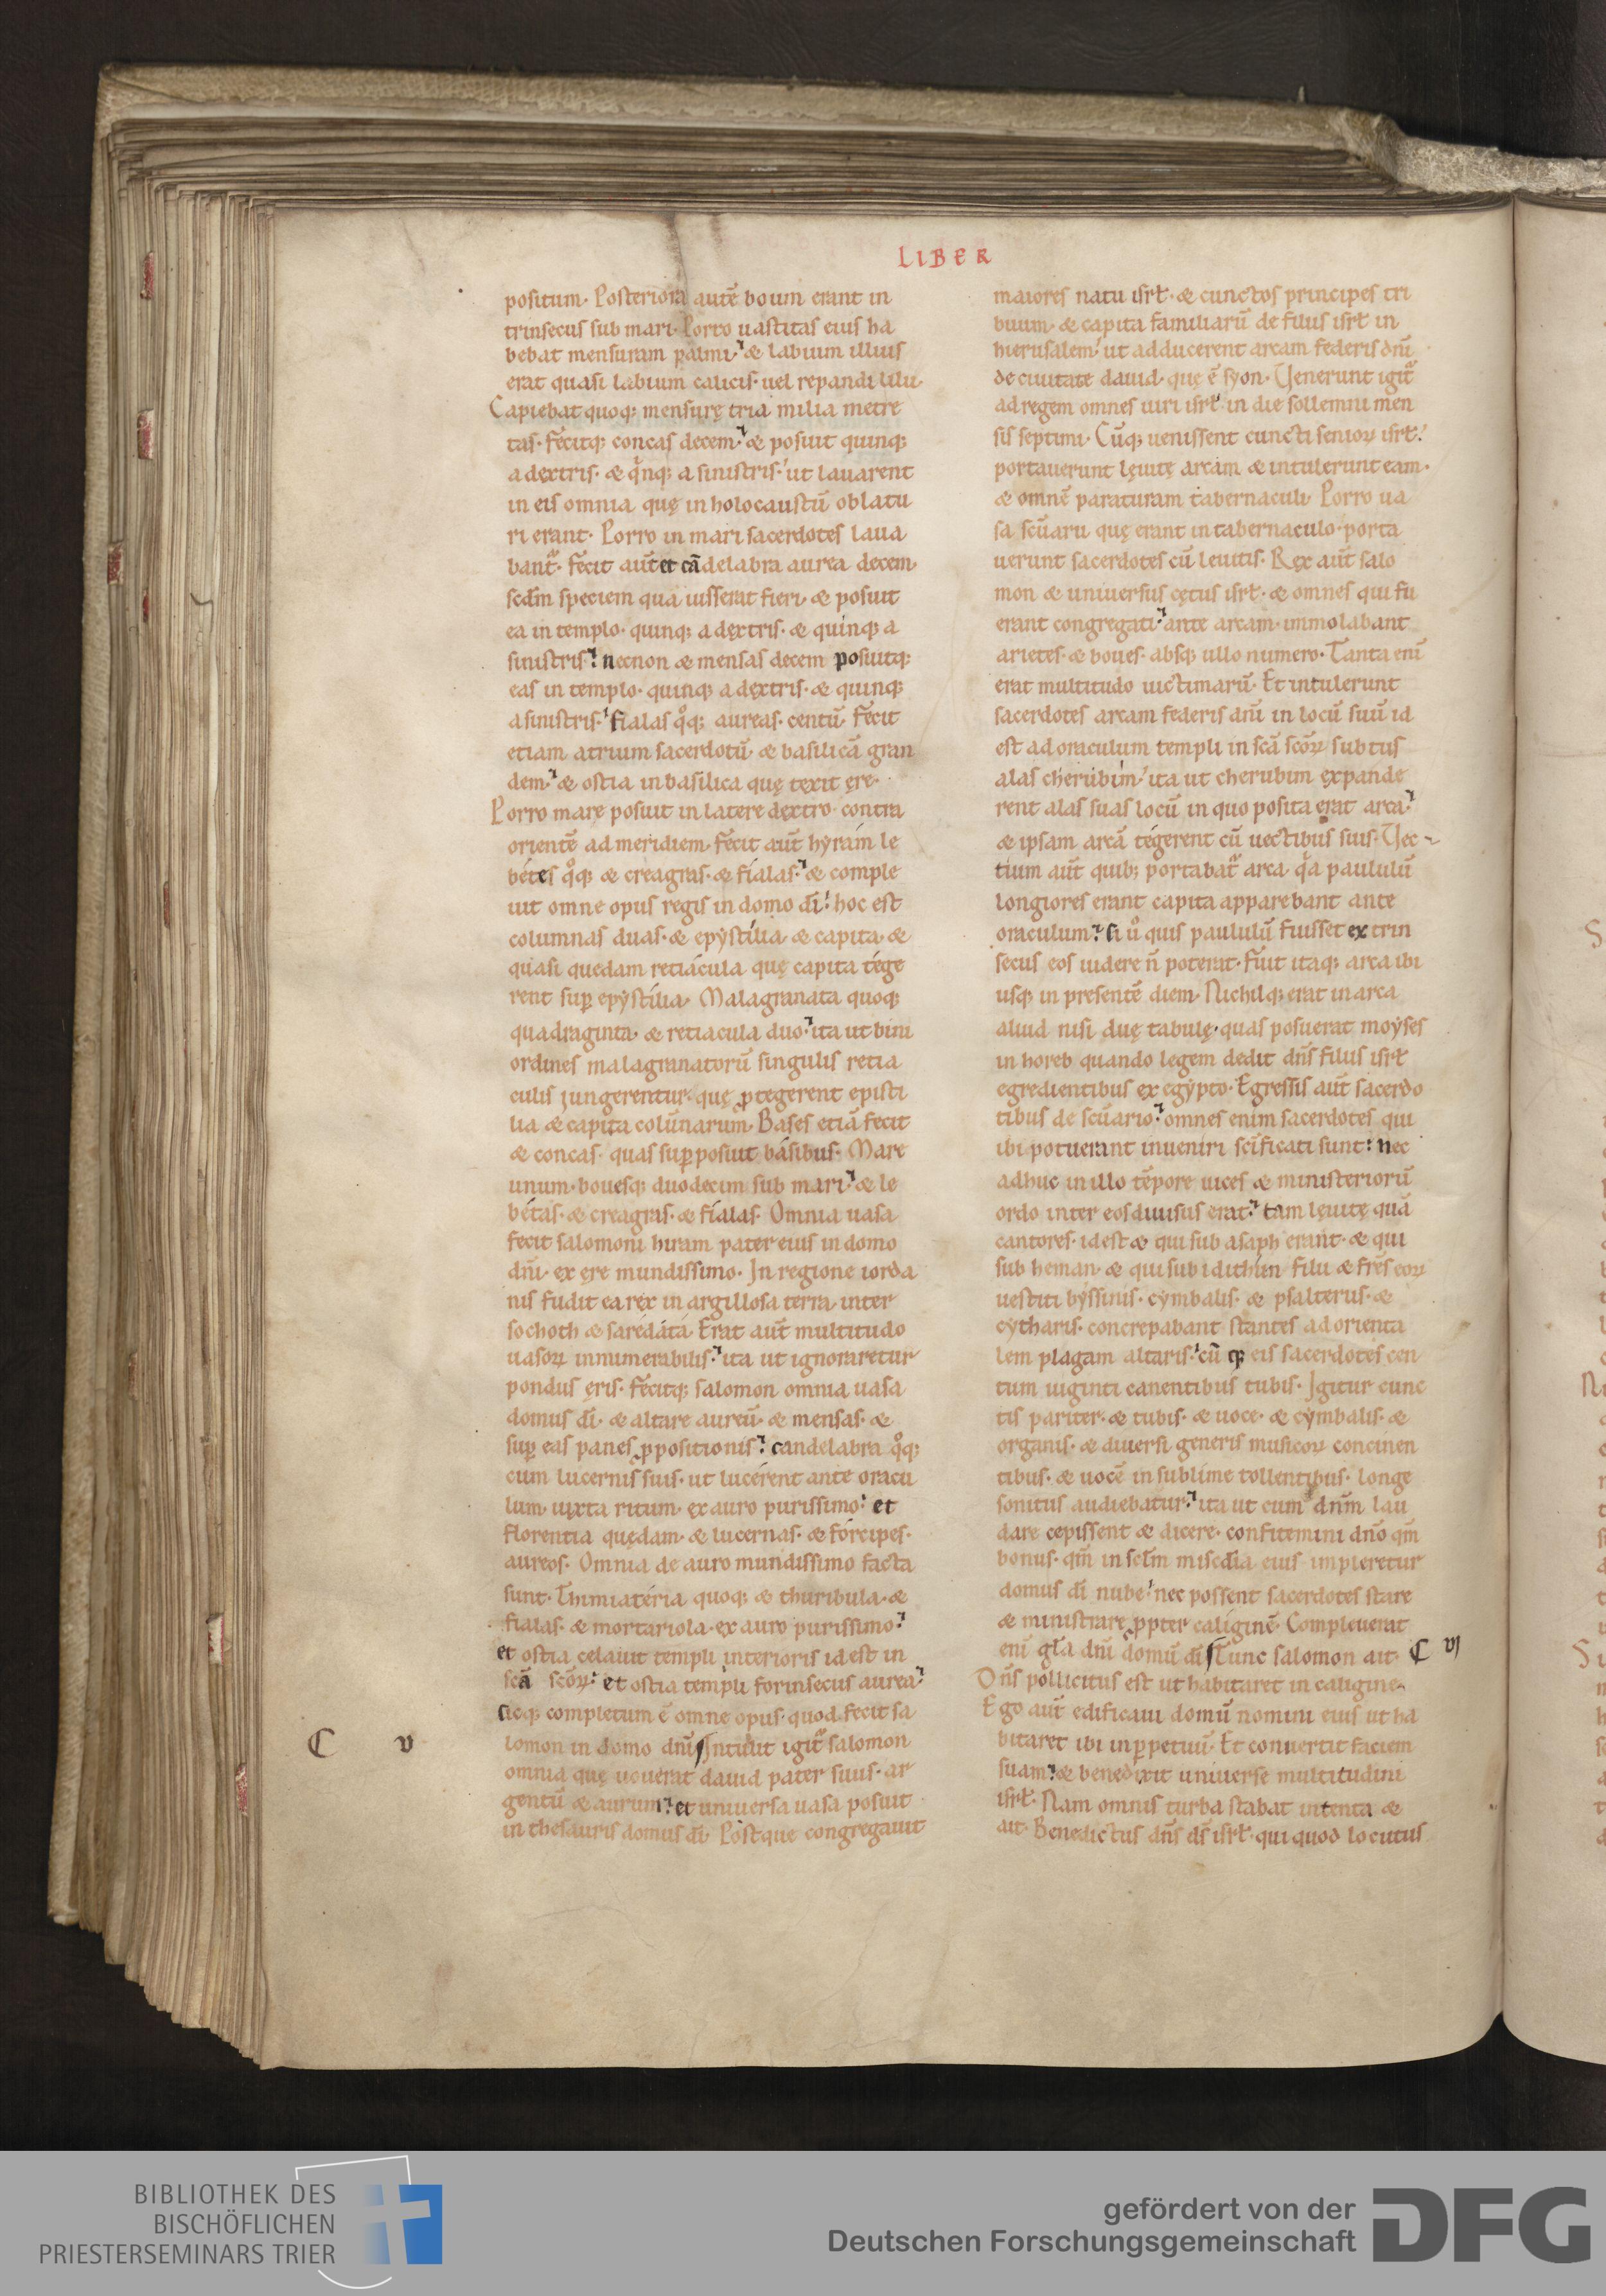 LIBER
positum. Posteriora autē boum erant in
trinsecus sub mari. Porro uastitas eius ha
bebat mensuram palmi. & labium illius
erat quasi labium calicis. uel repandi lilii.
Capiebat quoq; mensurę tria milia metre
tas. Fecitq; concas decem. & posuit quinq;
a dextris. & qinq; a sinistris. ut lauarent
in eis omnia quę in holocaustū oblatu
ri erant. Porro in mari sacerdotes laua
bant. Fecit aut̄ et cādelabra aurea decem.
scd̄m speciem qua iusserat fieri. & posuit
ea in templo. quinq; a dextris. & quinq; a
sinistris. necnon & mensas decem posuitq;
eas in templo. quinq; a dextris. & quinq;
a sinistris. fialas qoq; aureas. centū. Fecit
etiam atrium sacerdotū. & basilicā gran
dem. & ostia in basilica quę texit ęre.
Porro mare posuit in latere dextro contra
orientē ad meridiem. Fecit aut̄ hyram le
betes qoq; & creagras. & fialas. & comple
uit omne opus regis in domo dī. hoc est
columnas duas. & epystilia. & capita. &
quasi quedam retiacula quę capita tége
rent sup epystilia. Malagranata quoq;
quadraginta. & retiacula duo. ita ut bini
ordines malagranatorū singulis retia
culis jungerentur. quę ptegerent episti
lia & capita columnarum. Bases etiā fecit
& concas. quas supposuit básibus. Mare
unum. bouesq; duodecim sub mari. & le
bétas. & creagras. & fialas. Omnia uasa
fecit salomoni hiram pater eius in domo
dn̄i. ex ęre mundissimo. In regione iorda
nis fudit ea rex in argillosa terra inter
sochoth & saredáta. Erat aut̄ multitudo
uasoꝝ innumerabilis. ita ut ignoraretur
pondus ęris. Fecitq; salomon omnia uasa
domus dī. & altare aureū. & mensas. &
sup eas panes ppositionis. candelabra qoq;
cum lucernis suis. ut lucérent ante oracu
lum. iuxta ritum. ex auro purissimo. et
florentia quędam. & lucernas. & fórcipes.
aureos. Omnia de auro mundissimo facta
sunt. Thimiatéria quoq; & thuribula. &
fialas. & mortariola. ex auro purissimo.
et ostia celauit templi interioris id est in
scā scōꝝ. et ostia templi forinsecus aurea.
sicq; completum ē omne opus. quod fecit sa
lomon in domo dn̄i. Intulit igit̄ salomon
C v
omnia quę uouerat dauid pater suus. ar
gentū & aurum. et uniuersa uasa posuit
in thesauris domus dī. Postque congregauit
maiores natu isrł. & cunctos principes tri
buum. & capita familiarū de filiis isrł in
hierusalem. ut adducerent arcam federis dn̄i
de ciuitate dauid. quę ē syon. Uenerunt igit̄
ad regem omnes uiri isrł in die sollemni men
sis septimi. Cūq; uenissent cuncti senioꝝ isrł.
portauerunt lęuitę arcam & intulerunt eam.
& omnē paraturam tabernaculi. Porro ua
sa scūaru quę erant in tabernaculo. porta
uerunt sacerdotes cū leuitis. Rex aut̄ salo
mon & uniuersus cętus isrł. & omnes qui fu
erant congregati. ante arcam. immolabant
arietes. & boues. absq; ullo numero. Tanta enī
erat multitudo uictimarū. Et intulerunt
sacerdotes arcam federis dn̄i in locū suū id
est ad oraculum templi in scā scōꝝ subtus
alas cherubim. ita ut cherubim expande
rent alas suas locū in quo posita erat arca.
& ipsam arcā tégerent cū uectibus suis. Uec
tium aut̄ quib; portabat̄ arca qa paululū
longiores erant capita apparebant ante
oraculum. si uo quis paululū fuisset extrin
secus eos uidere n̄ poterat. Fuit itaq; arca ibi
usq; in presentē diem. Nichilq; erat in arca
aliud nisi duę tabulę. quas posuerat moyses
in horeb quando legem dedit dn̄s filiis isrł
egredientibus ex egypto. Egressis aut̄ sacerdo
tibus de scūario. omnes enim sacerdotes qui
ibi potuerant inueniri scīficati sunt. nec
adhuc in illo tēpore uices & ministeriorū
ordo inter eos diuisus erat. tam lęuitę quā
cantores. id est & qui sub asaph erant. & qui
sub heman. & qui sub idithun filii & fr̄es eoꝝ
uestiti byssinis. cymbalis. & psalteriis. &
cytharis. concrepabant stantes ad orienta
lem plagam altaris. cū q; eis sacerdotes cen
tum uiginti canentibus tubis. Igitur cunc
tis pariter. & tubis. & uoce. & cymbalis. &
organis. & diuersi generis musicoꝝ concinen
tibus. & uocē in sublime tollentibus. longe
sonitus audiebatur. ita ut cum dn̄m lau
dare cepissent & dicere. confitemini dn̄o qm̄
bonus. qm̄ in sclm̄ miscd̄ia eius impleretur
domus dī nube. nec possent sacerdotes stare
& ministrare ppter caliginē. Compleuerat
enī gła dn̄i domū dī. Tunc salomon ait. C vj
Dn̄s pollicitus est ut habitaret in caligine.
Ego aut̄ edificaui domū nomini eius ut ha
bitaret ibi inppetuū. Et conuertit faciem
suam. & benedixit uniuerse multitudini
isrł. Nam omnis turba stabat intenta &
ait. Benedictus dn̄s ds̄ isrł. qui quod locutus
BIBLIOTHEK DES
BISCHÖFLICHEN
PRIESTERSEMINARS TRIER
gefördert von der
Deutschen Forschungsgemeinschaft
DFG